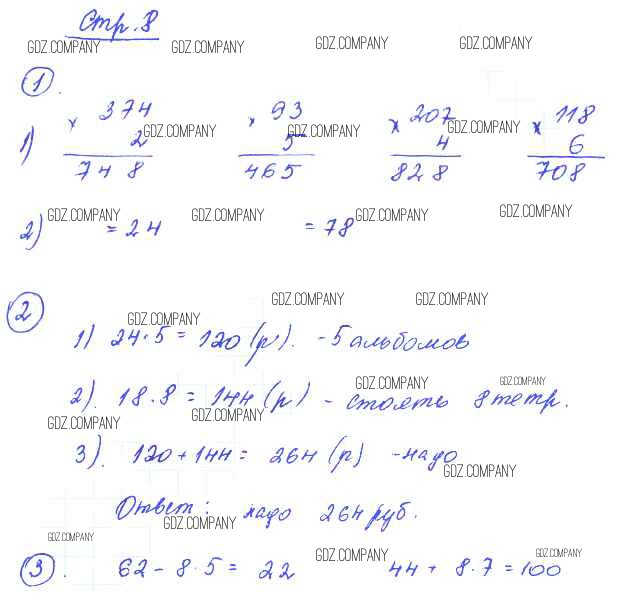 Стр. 8
GDZ.COMPANY GDZ.COMPANY GDZ.COMPANY GDZ.COMPANY
1.
1) × 374 × 93 × 207 × 118
2 GDZ.COMPANY 5 GDZ.COMPANY 4 GDZ.COMPANY 6
748 465 828 708
GDZ.COMPANY GDZ.COMPANY GDZ.COMPANY GDZ.COMPANY
2) = 24 = 78
2
GDZ.COMPANY GDZ.COMPANY
GDZ.COMPANY
1) 24·5 = 120 (р). - 5 альбомов
GDZ.COMPANY GDZ.COMPANY
2). 18·8 = 144 (р) - стоять 8 тетр.
GDZ.COMPANY GDZ.COMPANY
3). 120 + 144 = 264 (р) - надо
GDZ.COMPANY
Ответ: надо 264 руб.
GDZ.COMPANY
GDZ.COMPANY GDZ.COMPANY GDZ.COMPANY
3. 62 - 8·5 = 22 44 + 8·7 = 100